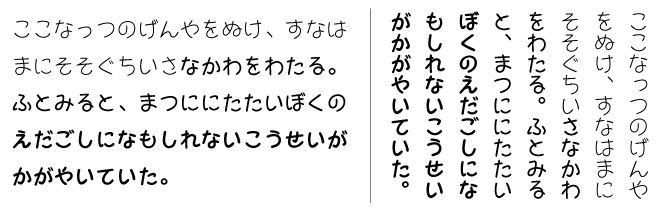 ここなっつのげんやをぬけ、すなは
まにそそぐちいさなかわをわたる。
ふとみると、まつににたたいぼくの
えだごしになもしれないこうせいが
かがやいていた。
ここなっつのげんや
をぬけ、すなはまに
そそぐちいさなかわ
をわたる。ふとみる
と、まつににたたい
ぼくのえだごしにな
もしれないこうせい
がかがやいていた。